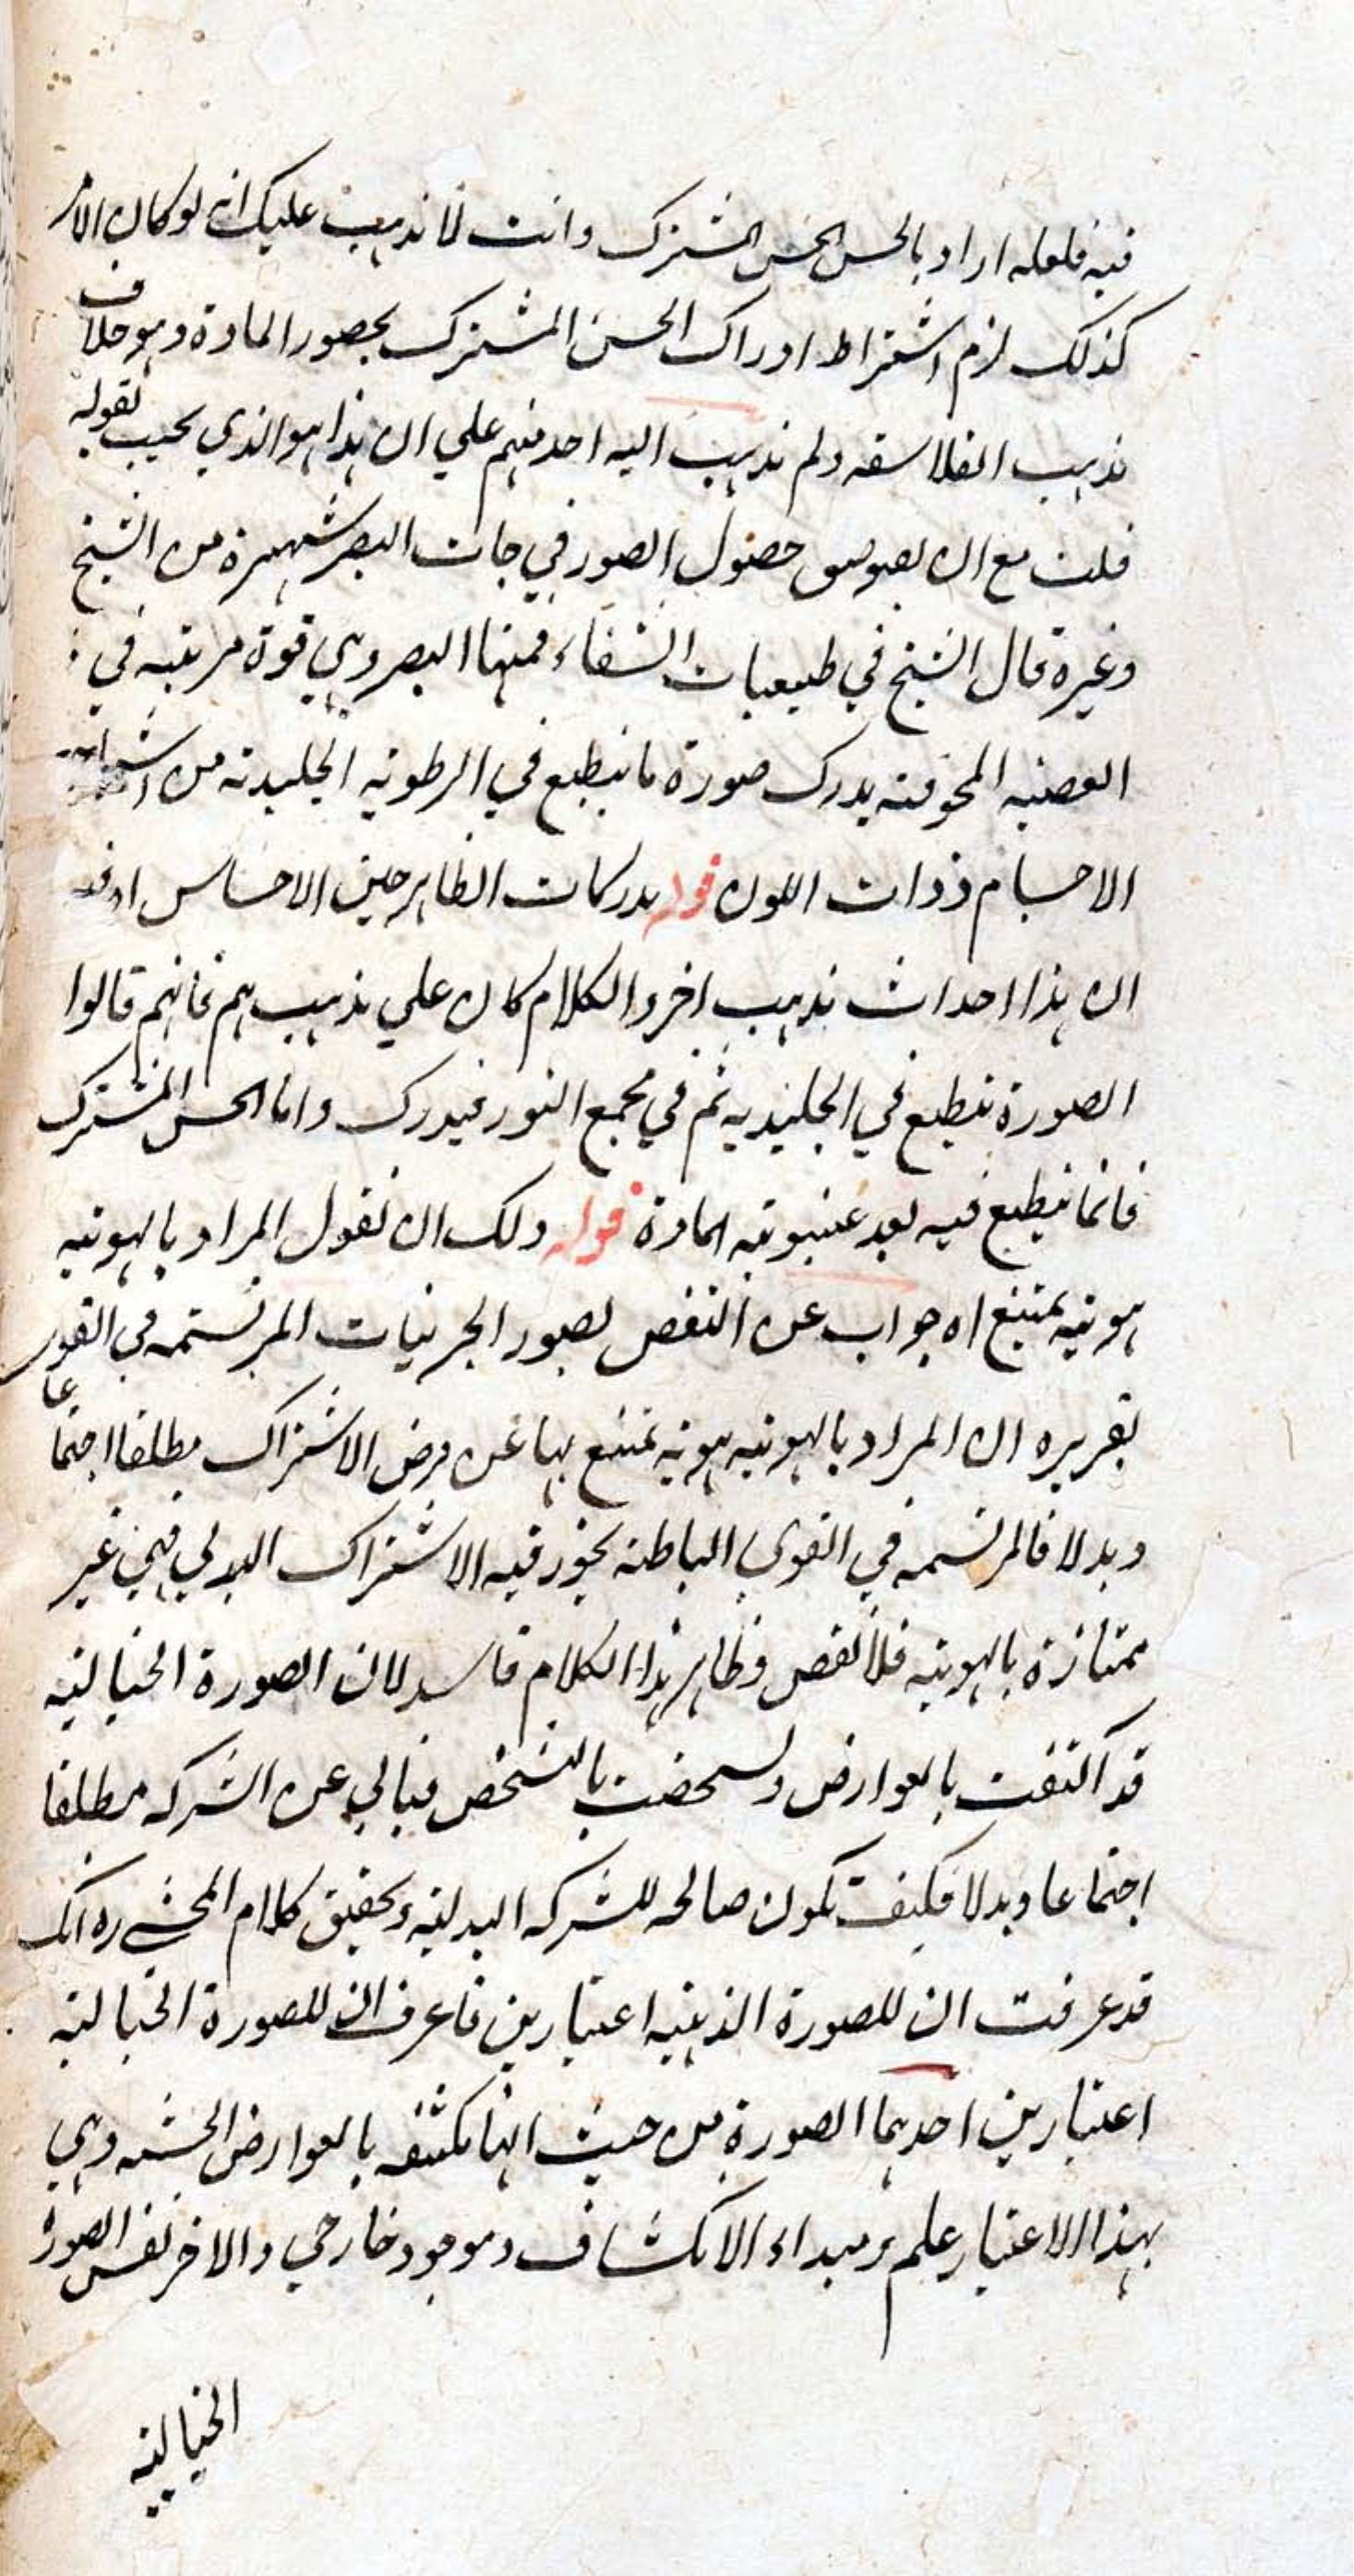 فيه فلعله اراد بالحس الحس المشترك وانت لا يذهب عليك انه لو كان الامر
كذلك لزم اشتراط ادراك الحس المشترك بحضور المادة وهو خلاف
مذهب الفلاسفه ولم يذهب اليه احد منهم علي ان هذا هو الذي يجيب بقوله
قلت مع ان نصوص حصول الصور في حات البصر شهيرة من الشيخ
وغيره قال الشيخ في طبيعيات الشفاء فمنها البصر وهي قوة مرتبه في
العصبه المجوفته يدرك صورة ما ينطبع في الرطوبه الجليديه من اشباح
الاجسام ذوات اللون قوله مدركات الظاهر حين الاحساس اه قد
ان هذا احداث مذهب اخر والكلام كان علي مذهبهم فانهم قالوا
الصورة ينطبع في الجليديه ثم في مجمع النور فيدرك واما الحس المشترك
فانما ينطبع فيه بعد غيبوبته المادة قوله ولك ان تقول المراد بالهويه
هويه يمتنع اه جواب عن النقض بصور الجزئيات المرتسمه في القوي
تقريره ان المراد بالهويه هويه تمتنع بها عن فرض الاشتراك مطلقا اجتماعا
وبدلا فالمرتسمه في القوي الباطنه يجوز فيه الاشتراك البدلي فهي غير
ممتازة بالهويه فلا نقض وظاهر هذا الكلام فاسد لان الصورة الخياليه
قد اكتنفت بالعوارض وتشخصت بالتشخص فيابي عن الشركه مطلقا
اجتماعا وبدلا فكيف تكون صالحه للشركه البدليه وتحقيق كلام المحشي ره انك
قد عرفت ان للصورة الذهنيه اعتبارين فاعرف ان للصورة الخياليه
اعتبارين احدهما الصورة من حيث انها مكتنفه بالعوارض الخيشيه وهي
بهذا الاعتبار علم ومبداء الانكشاف وموجود خارجي والاخر نفس الصورة
الخياليه